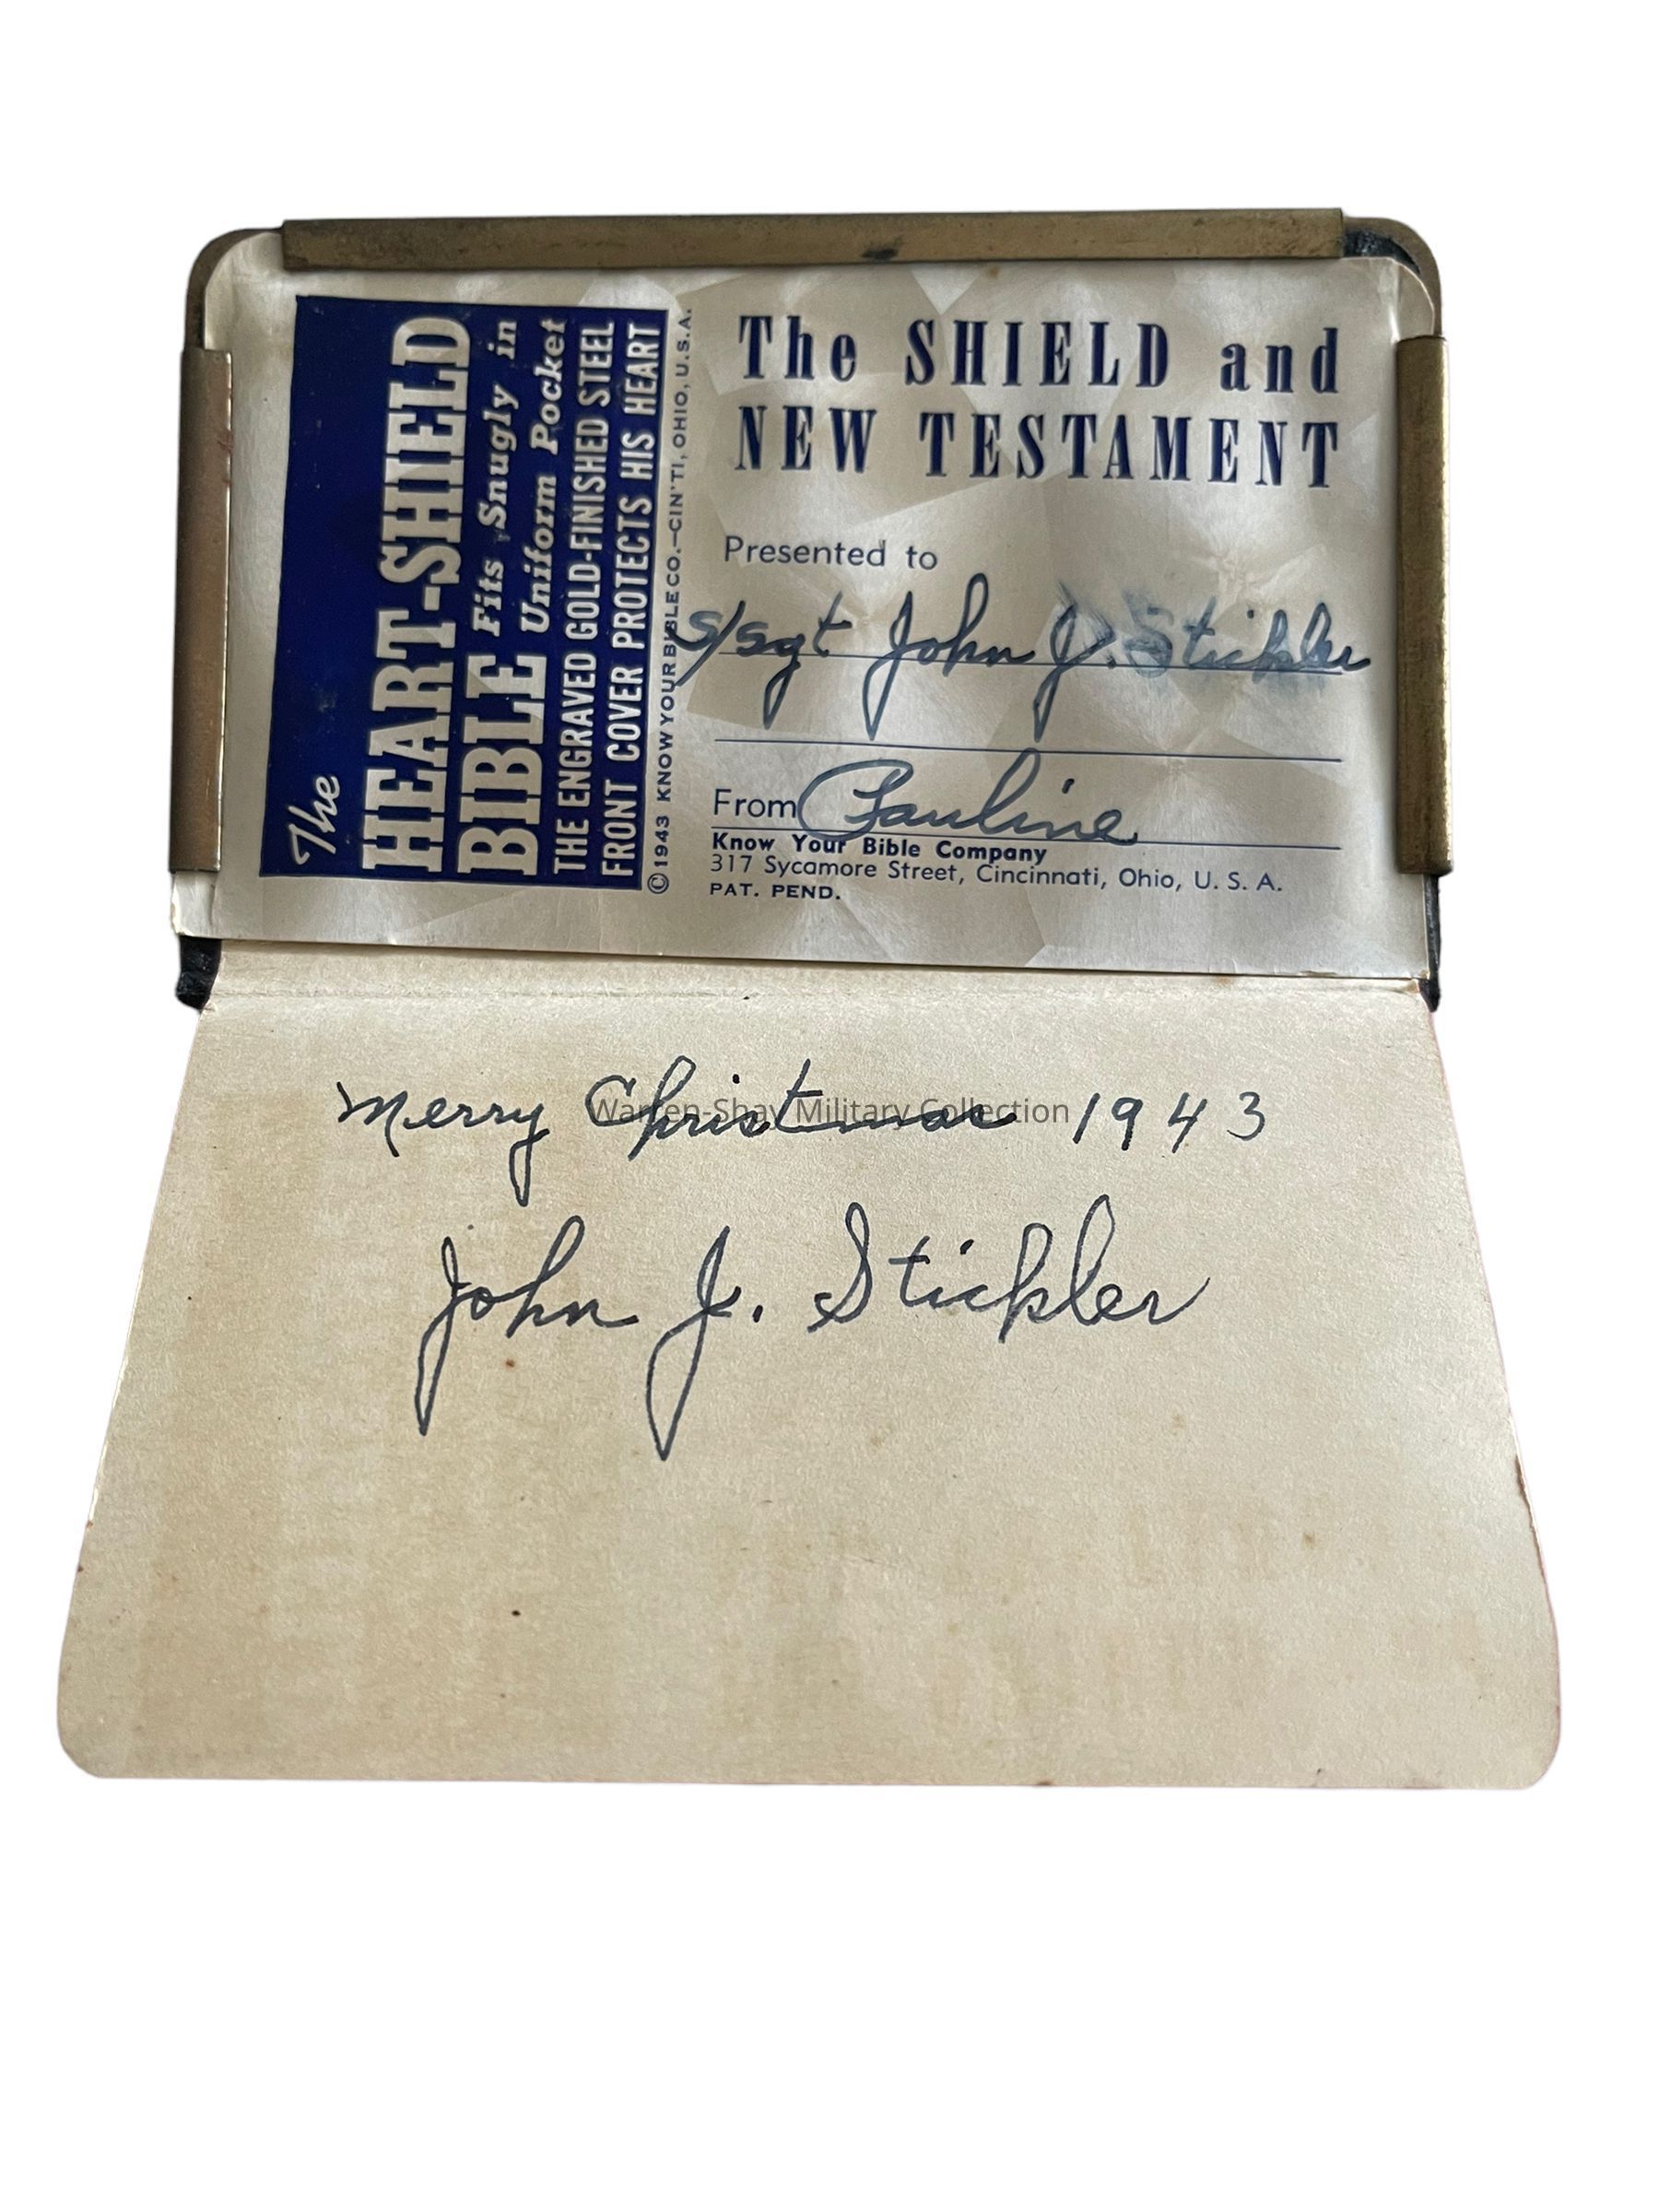 The
HEART-SHIELD
BIBLE Fits Snugly in
Uniform Pocket
THE ENGRAVED GOLD-FINISHED STEEL
FRONT COVER PROTECTS HIS HEART
© 1943 KNOW YOUR BIBLE CO.—CIN'TI, OHIO, U.S.A.
The SHIELD and
NEW TESTAMENT
Presented to
S/Sgt John J. Stickler
From Pauline
Know Your Bible Company
317 Sycamore Street, Cincinnati, Ohio, U. S. A.
PAT. PEND.
Merry Christmas 1943
Warren-Shay Military Collection
John J. Stickler